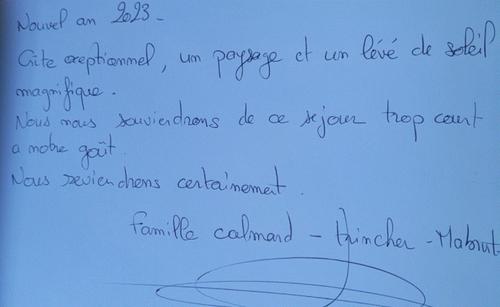 Nouvel an 2023-
Gîte exeptionnel, un paysage et un lévé de soleil
magnifique.
Nous nous souviendrons de ce sejour trop court
a notre goût.
Nous reviendrons certainement.
famille calmard -